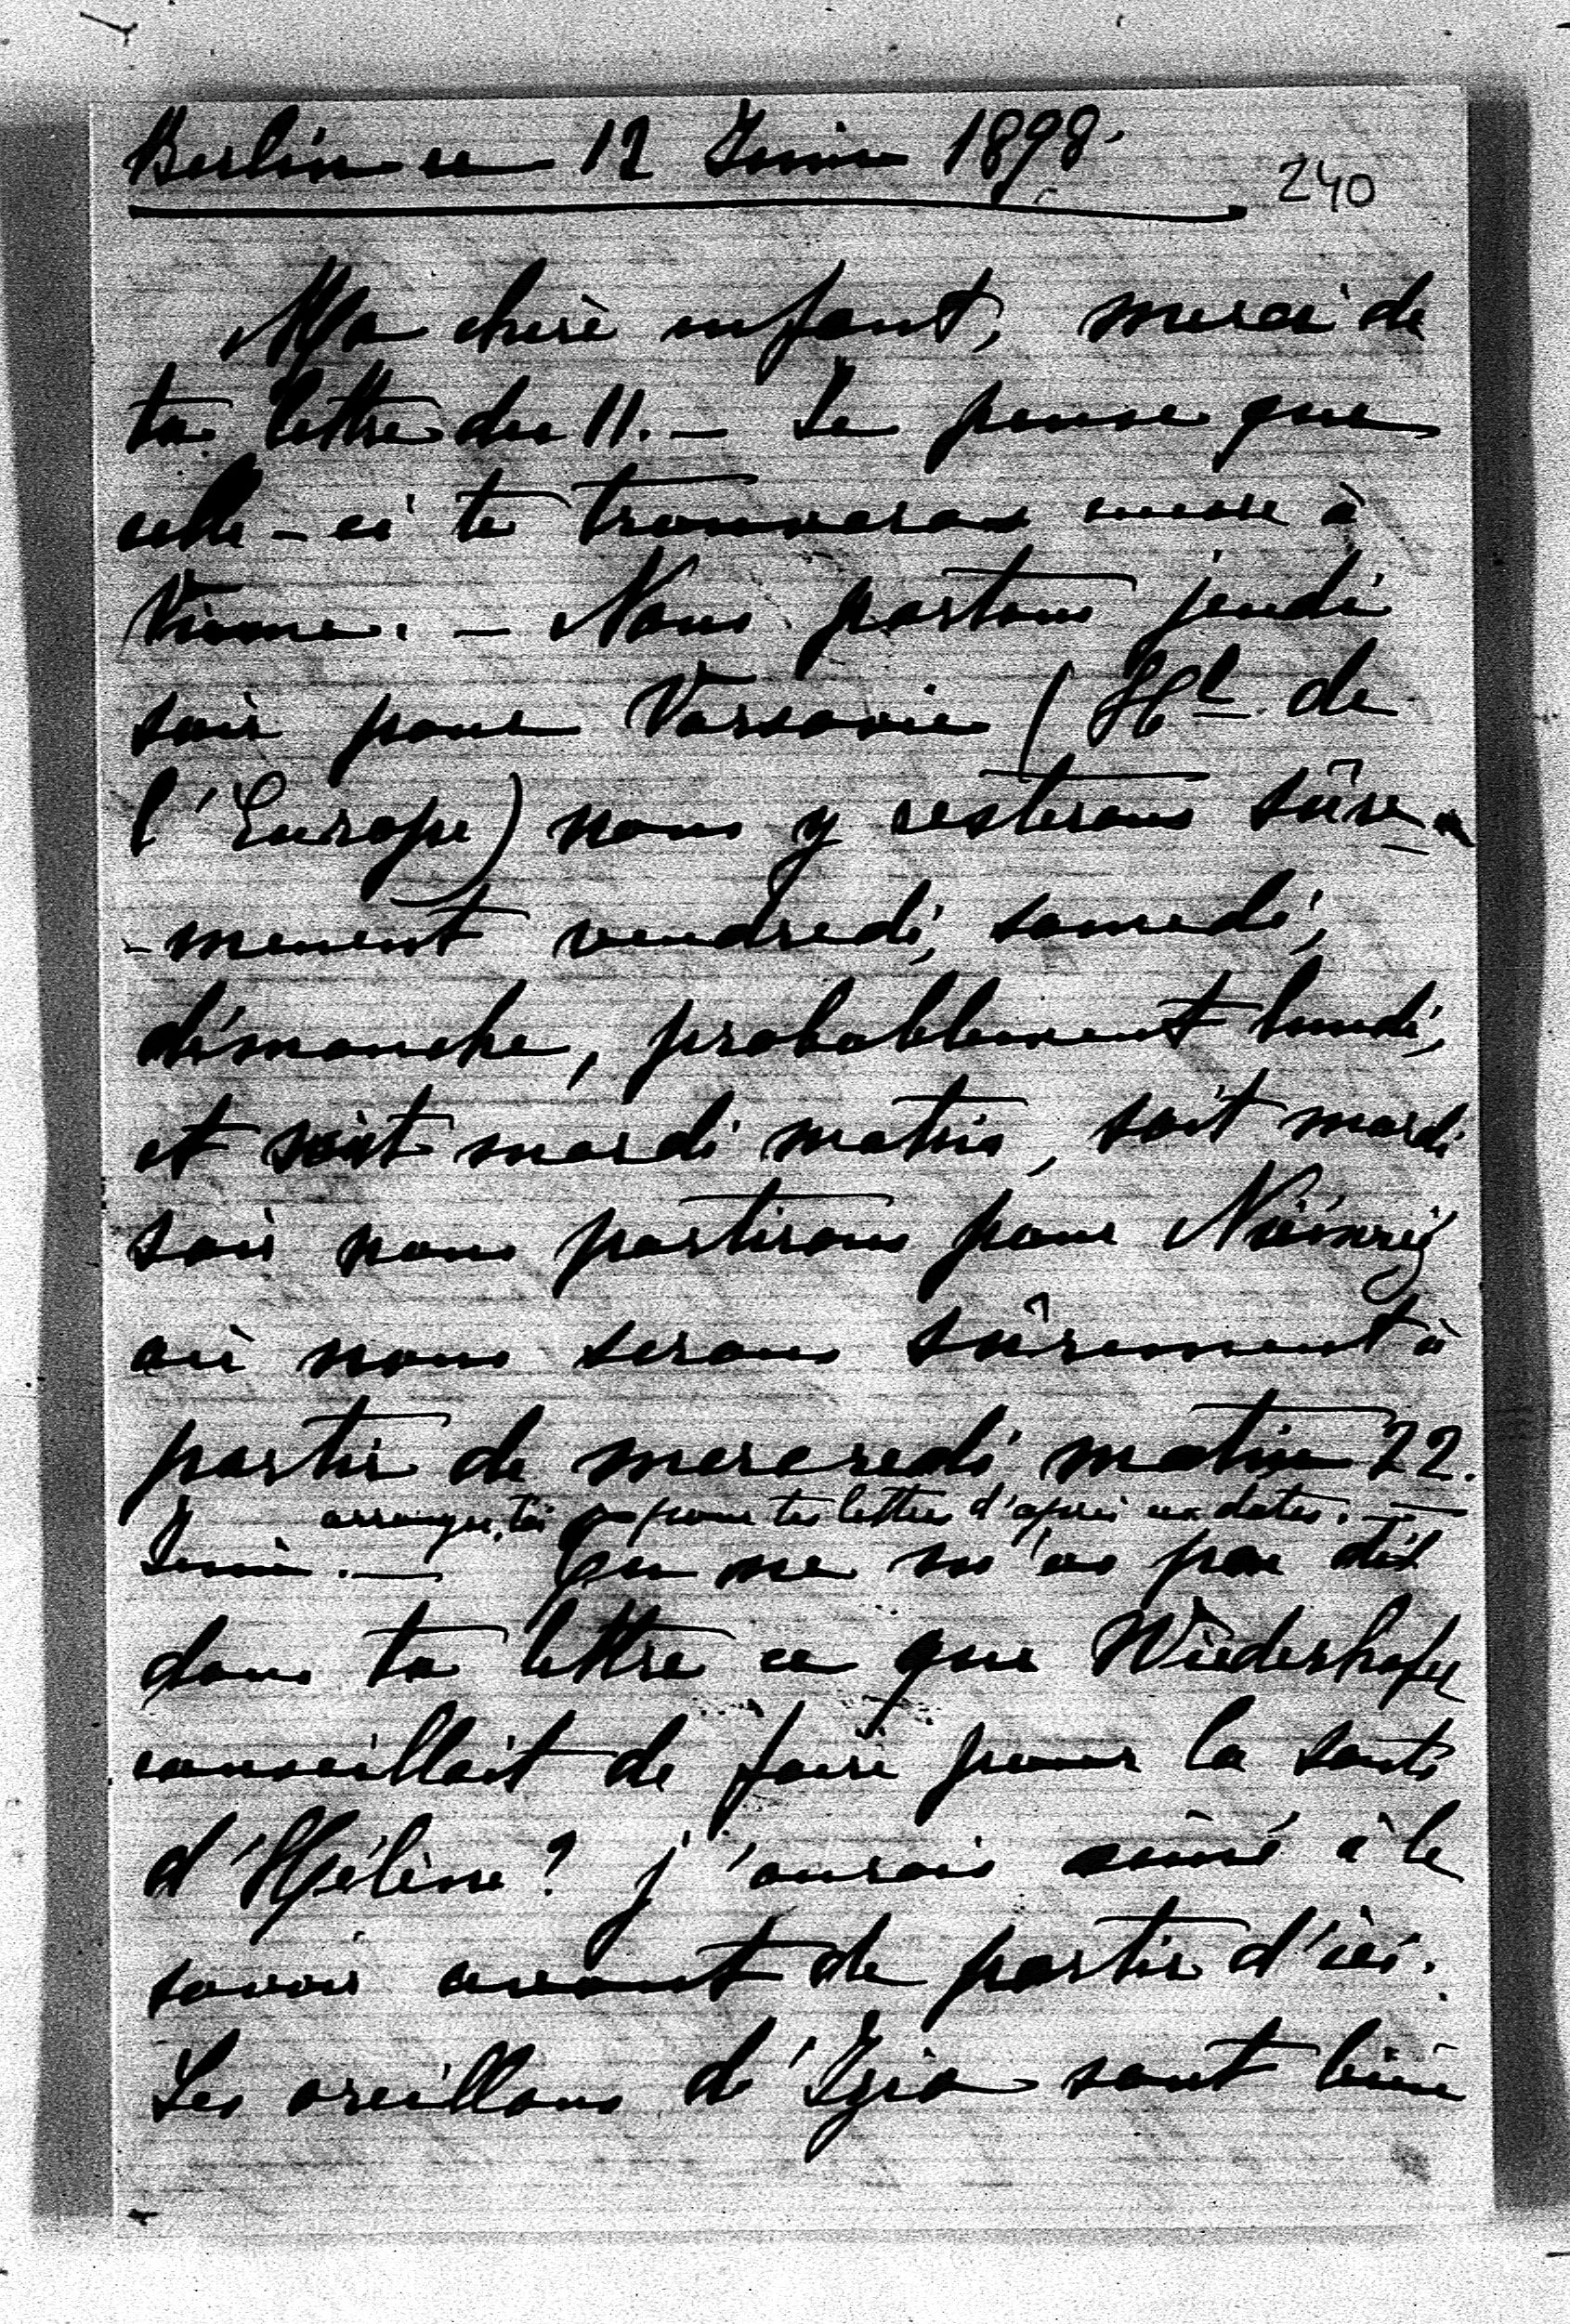 Berlin ce 12 Juin 1898.
240
Ma chère enfant, merci de
ta lettre du 11. — Je pense que
celle-ci te trouvera encore à
Vienne. — Nous partons jeudi
soir pour Varsovie (Hl de
l'Europe) nous y resterons sûre-
-ment vendredi, samedi,
dimanche, probablement lundi,
et soit mardi matin, soit mardi
soir nous partirons pour
où nous serons sûrement à
partir de mercredi matin 22.
arrange-toi pour tes lettres d'après ces dates. —
Juin. — Tu ne m'as pas dit
dans ta lettre ce que Wiederhofer
conseillait de faire pour la santé
d'Hélène? j'aurais aimé à le
savoir avant de partir d'ici.
Les oreillons d'Izia sont bien